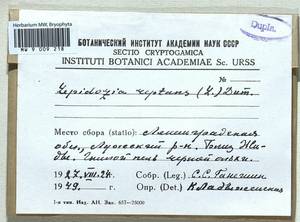 Herbarium MW, Bryophyta
MW 9 009 218
Dupla.
БОТАНИЧЕСКИЙ ИНСТИТУТ АКАДЕМИИ НАУК СССР
SECTIO CRYPTOGAMICA
INSTITUTI BOTANICI ACADEMIAE Sc. URSS
№
Lepidozia reptans (L.) Dum.
Место сбора (statio): Ленинградская
обл., Лужский р-н.
Гнилой пень черной ольхи.
27.VIII.24. Собр. (Leg.) С.С. Ганешин
1949 г. Опр. (Det.) К. Ладыженская
1-я тип. Изд. АН. Зак. 657—25000